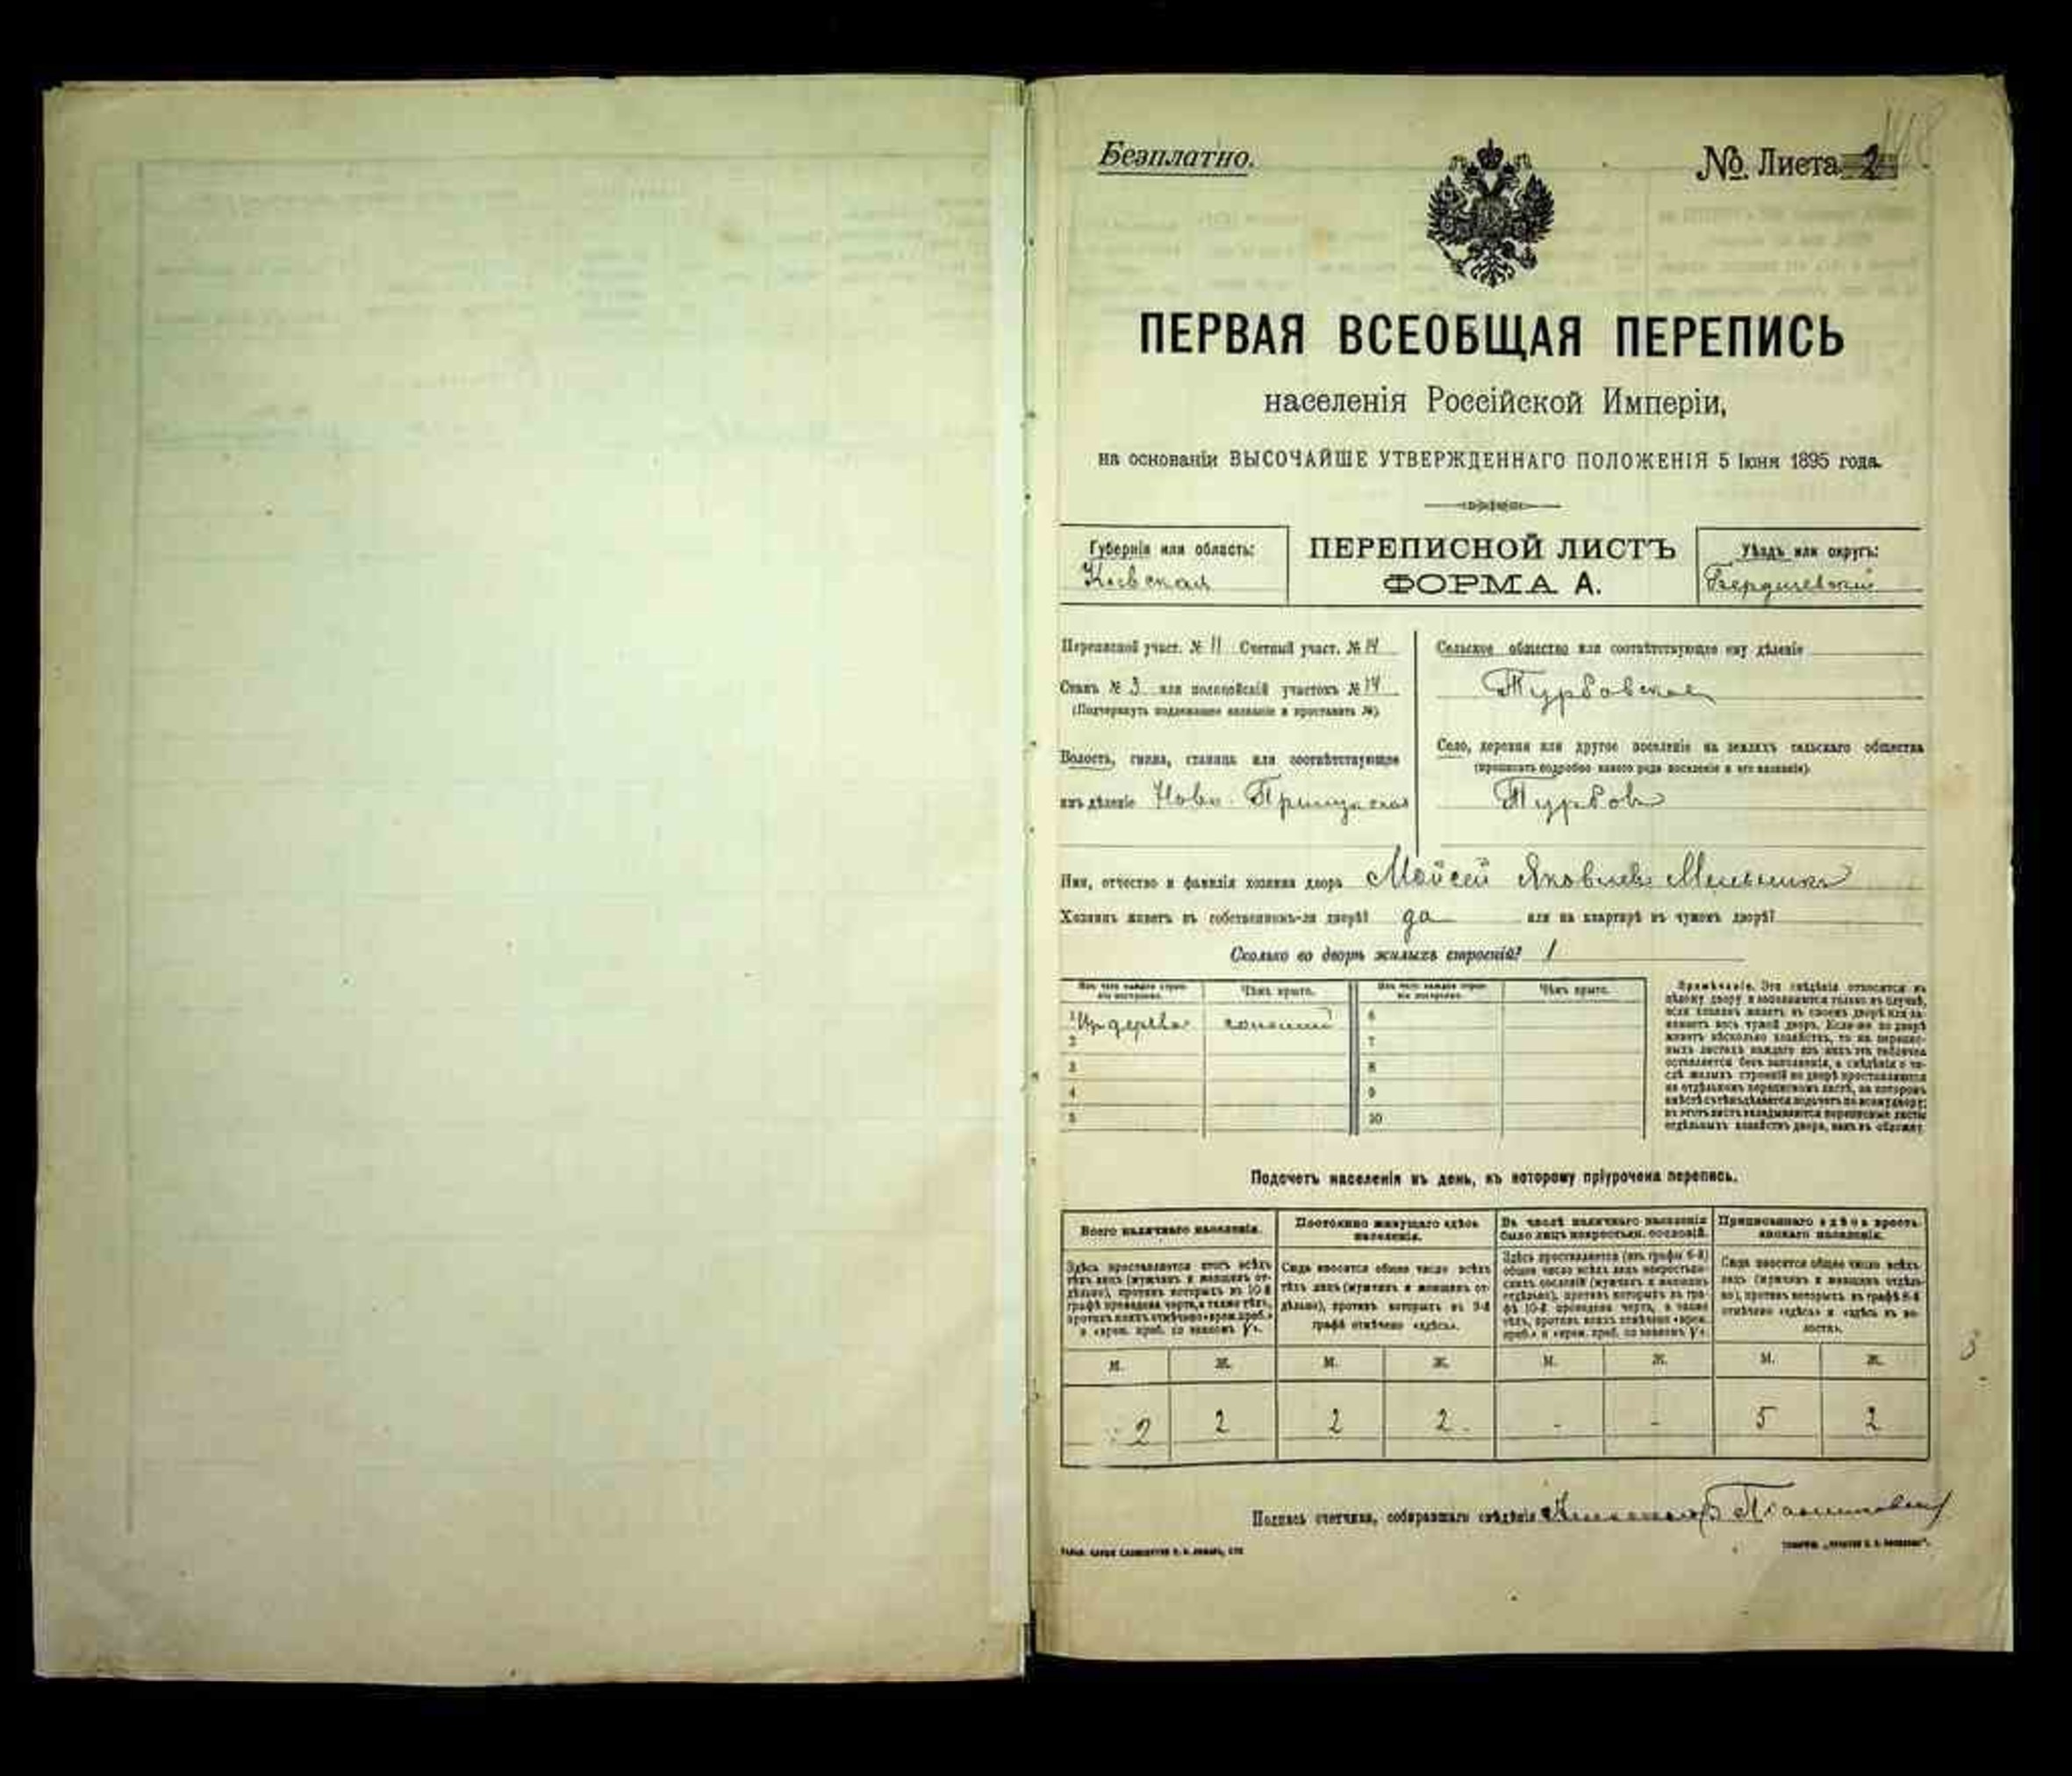 Безплатно.
№ Листа 2
ПЕРВАЯ ВСЕОБЩАЯ ПЕРЕПИСЬ
населенія Россійской Имперіи,
на основаніи ВЫСОЧАЙШЕ УТВЕРЖДЕННАГО ПОЛОЖЕНІЯ 5 Іюня 1895 года.
Губернія или область:
Кіевская
ПЕРЕПИСНОЙ ЛИСТЪ
ФОРМА А.
Уѣздъ или округъ:
Бердичевскій
Переписной участ. № 11 Счетный участ. № 14
Станъ № 3 или полицейскій участокъ № 14
(Подчеркнуть подлежащее названіе и проставить №)
Волость, гмина, станица или соотвѣтствующее
имъ дѣленіе Ново-
Сельское общество или соотвѣтствующее ему дѣленіе
Турбовское
Село, деревня или другое поселеніе на земляхъ сельскаго общества
(прописать подробно какого рода поселеніе и его названіе)
Турбовъ
Имя, отчество и фамилія хозяина двора Мойсей Яковлевъ Мельникъ
Хозяинъ живетъ въ собственномъ-ли дворѣ? да или на квартирѣ въ чужомъ дворѣ?
Сколько во дворѣ жилыхъ строеній? 1
Изъ чего каждое строеніе построено. Чѣмъ крыто. Изъ чего каждое строеніе построено. Чѣмъ крыто.
1 Изъ дерева соломой 6
2 7
3 8
4 9
5 10
Примѣчаніе. Эти свѣдѣнія относятся къ
цѣлому двору и заполняются только въ случаѣ,
если хозяинъ живетъ въ своемъ дворѣ или за-
нимаетъ весь чужой дворъ. Если-же во дворѣ
живетъ нѣсколько хозяйствъ, то на перепис-
ныхъ листахъ каждаго изъ нихъ эта табличка
оставляется безъ заполненія, а свѣдѣнія о чи-
слѣ жилыхъ строеній во дворѣ проставляются
на отдѣльномъ переписномъ листѣ, на которомъ
вмѣстѣ съ тѣмъ дѣлается подсчетъ по всему двору;
въ этотъ листъ вкладываются переписные листы
отдѣльныхъ хозяйствъ двора, какъ въ обложку.
Подсчетъ населенія въ день, къ которому пріурочена перепись.
Всего наличнаго населенія.
Здѣсь проставляется итогъ всѣхъ
тѣхъ лицъ (мужчинъ и женщинъ от-
дѣльно), противъ которыхъ въ 10-й
графѣ проведена черта, а также тѣхъ,
противъ коихъ отмѣчено «врем. преб.»
и «врем. преб. со знакомъ V».
Постоянно живущаго здѣсь
населенія.
Сюда вносится общее число всѣхъ
тѣхъ лицъ (мужчинъ и женщинъ от-
дѣльно), противъ которыхъ въ 9-й
графѣ отмѣчено «здѣсь».
Въ числѣ наличнаго населенія
было лицъ некрестьян. сословій.
Здѣсь проставляется (изъ графы 6-й)
общее число всѣхъ лицъ некрестьян-
скихъ сословій (мужчинъ и женщинъ
отдѣльно), противъ которыхъ въ гра-
фѣ 10-й проведена черта, а также
тѣхъ, противъ коихъ отмѣчено «врем.
преб.» и «врем. преб. со знакомъ V».
Приписаннаго здѣсь кресть-
янскаго населенія.
Сюда вносится общее число всѣхъ
лицъ (мужчинъ и женщинъ отдѣль-
но), противъ которыхъ въ графѣ 8-й
отмѣчено «здѣсь» и «здѣсь въ во-
лости».
М. Ж. М. Ж. М. Ж. М. Ж.
2 2 2 2 - - 5 2
3
Подпись счетчика, собиравшаго свѣдѣнія